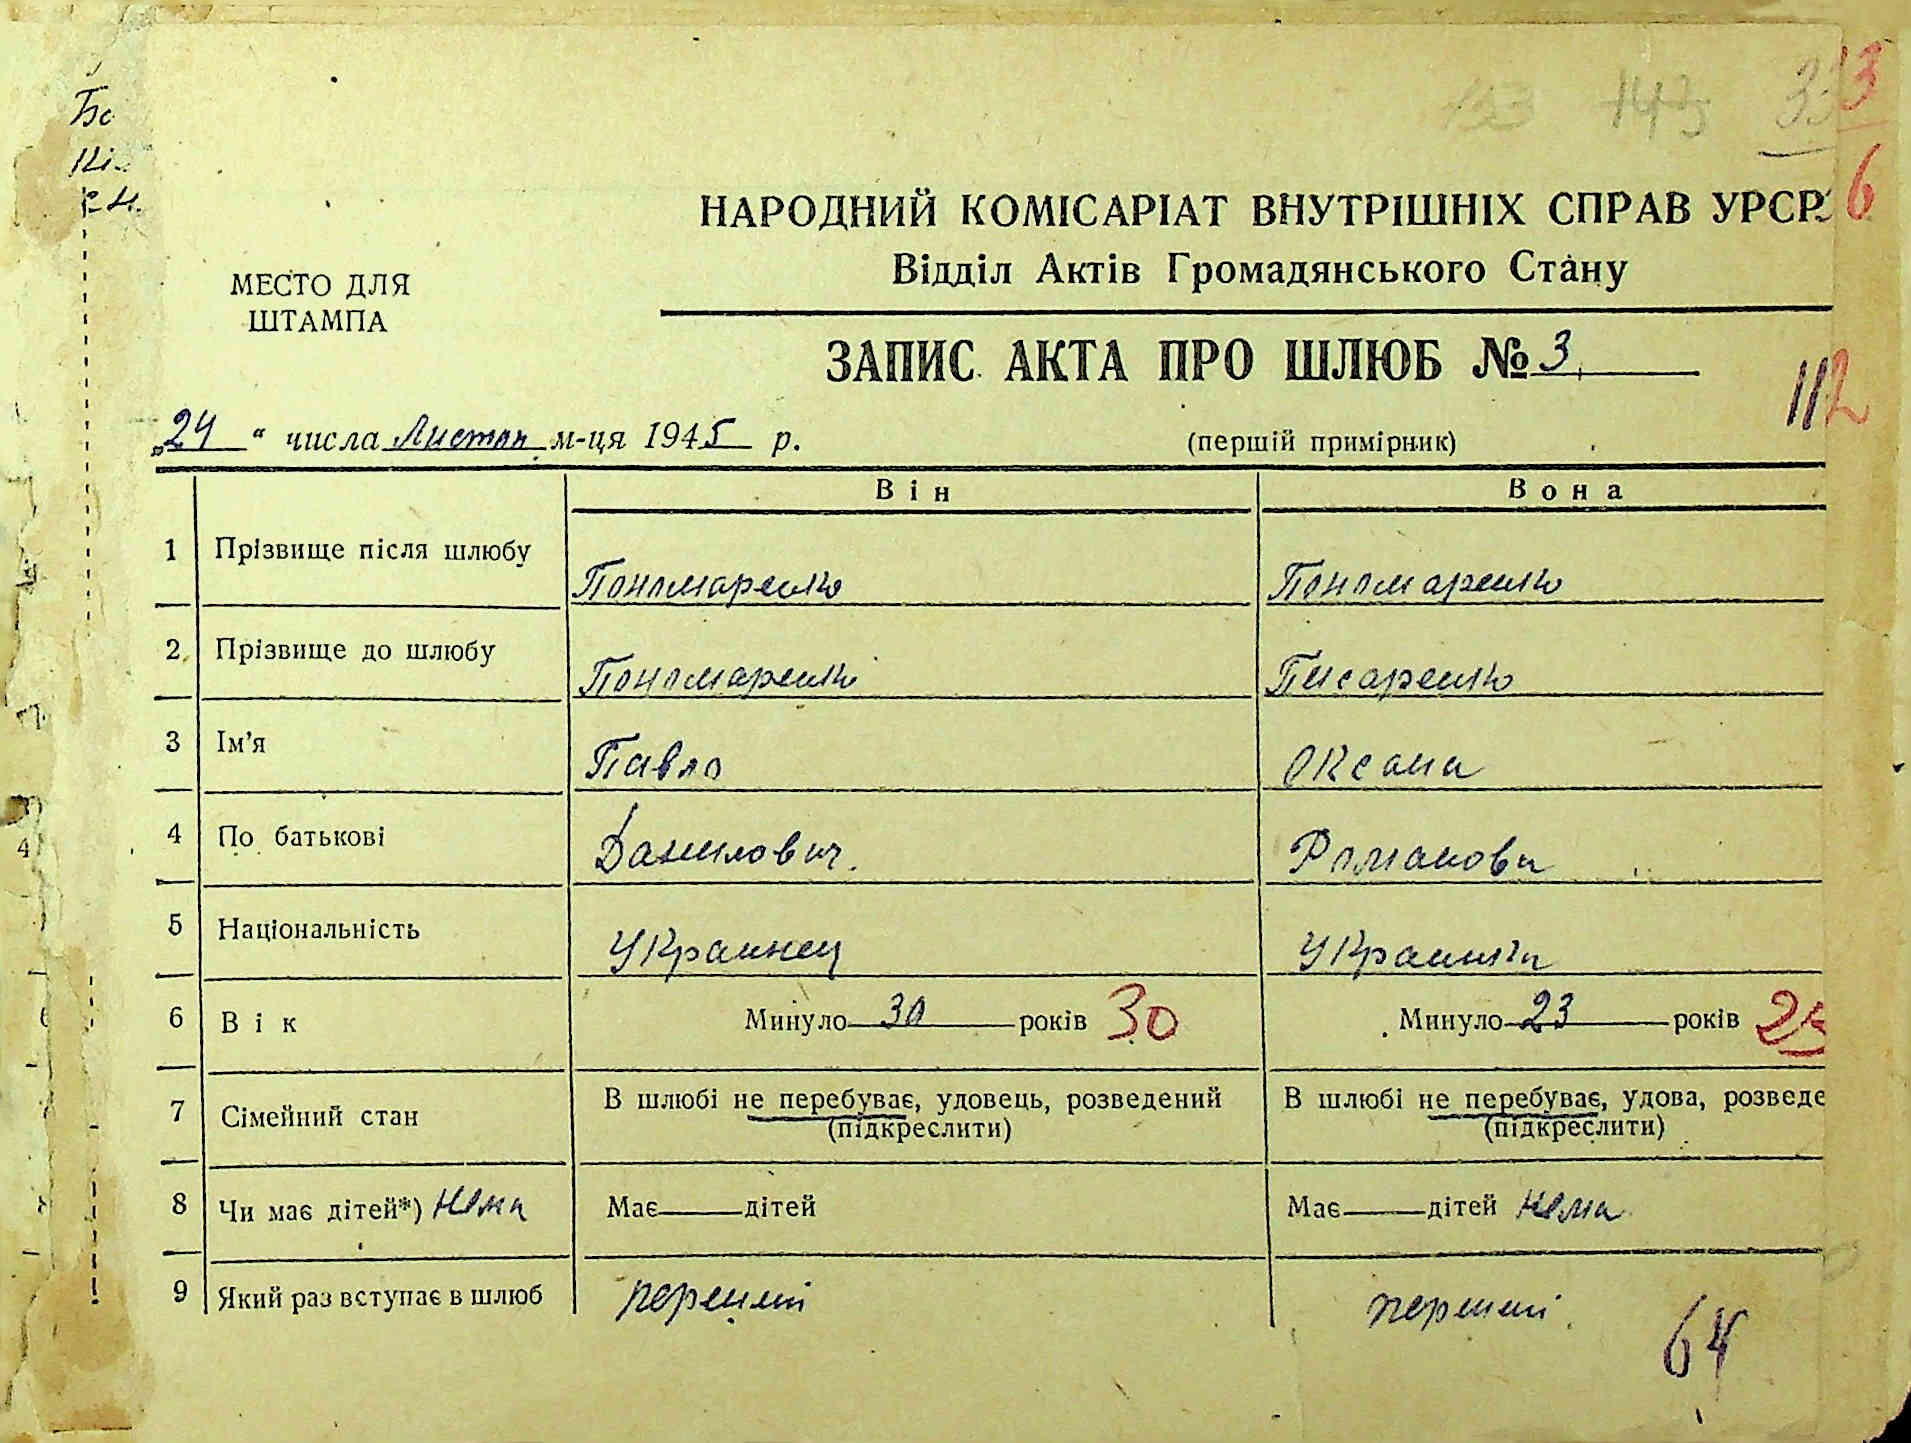 133 143 33 3
6
НАРОДНИЙ КОМІСАРІАТ ВНУТРІШНІХ СПРАВ УРСР
Відділ Актів Громадянського Стану
МЕСТО ДЛЯ
ШТАМПА
ЗАПИС АКТА ПРО ШЛЮБ № 3
112
„24“ числа Листоп м-ця 1945 р.
(першій примірник)
Він Вона
1 Прізвище після шлюбу Пономаренко Пономаренко
2 Прізвище до шлюбу Пономаренко Писаренко
3 Ім'я Павло Оксана
4 По батькові Данилович. Романовн
5 Національність Украинец Украинка
6 Вік Минуло 30 років 30 Минуло 23 років
7 Сімейний стан В шлюбі не перебуває, удовець, розведений В шлюбі не перебуває, удова, розведе
(підкреслити) (підкреслити)
8 Чи має дітей*) нема Має — дітей Має — дітей нема
9 Який раз вступає в шлюб перший перший
64